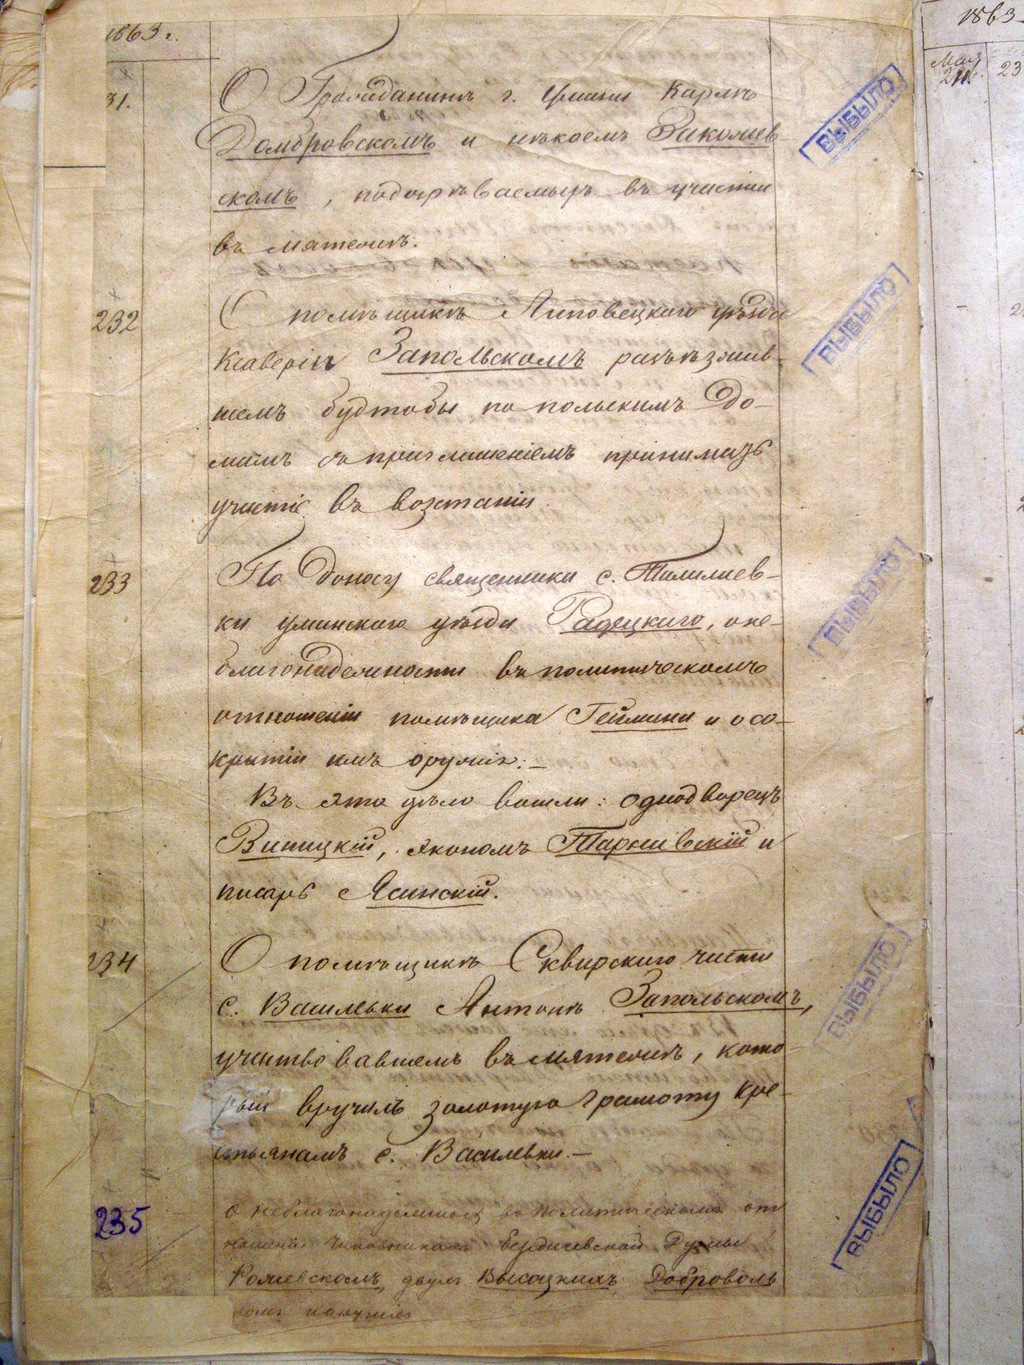 1863 г.
31.
О Гражданинѣ г. Умани Карлѣ
Домбровскомъ и нѣкоемъ Заколиев-
скомъ, подозрѣваемыхъ въ участии
въ мятежѣ.
232
О помѣщикѣ Липовецкаго уѣзда
Ксаверіи Запольскомъ разъѣзжав-
шемъ будтобы по польскимъ до-
мамъ съ приглашеніемъ принимать
участіе въ возстаніи.
233
По доносу священника с. Талалаев-
ки уманскаго уѣзда Радецкаго, о не-
благонадежности въ политическомъ
отношеніи помѣщика Геймана и о со-
крытіи имъ оружія.-
Въ это дѣло вошли: однодворецъ
Виницкій, экономъ Таржевскій и
писарь Ясинскій.
234
О помѣщикѣ Сквирскаго части
с. Василевки Антонѣ Запольскомъ,
участвовавшемъ въ мятежѣ, кото-
рый вручилъ золотую грамоту кре-
стьянамъ с. Василевки.-
235
О неблагонадежности въ политическомъ от
ношеніи чиновниковъ Бердичевской Думы
двухъ Высоцкихъ, Доброволь
ВЫБЫЛО
ВЫБЫЛО
ВЫБЫЛО
ВЫБЫЛО
ВЫБЫЛО
1863
Мая
24.
23